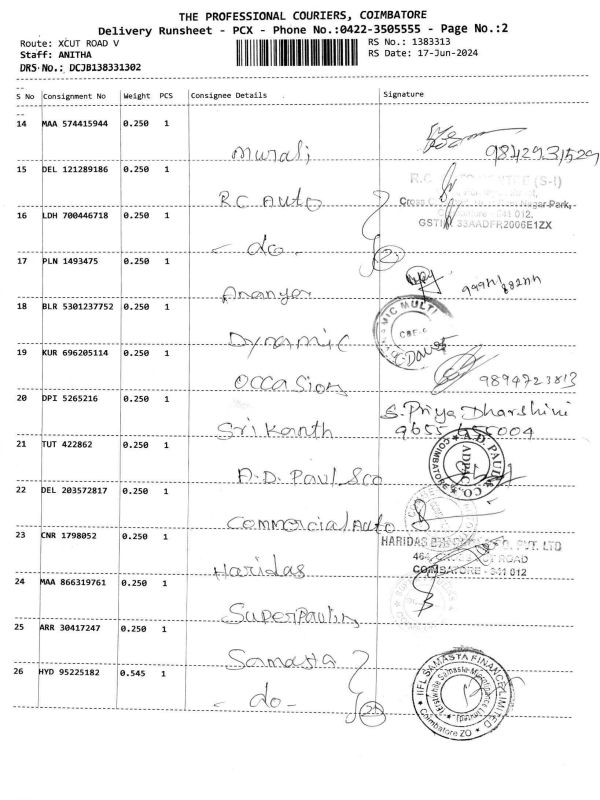 THE PROFESSIONAL COURIERS, COIMBATORE
Delivery Runsheet - PCX - Phone No.:0422-3505555 - Page No.:2
Route: XCUT ROAD V
RS No.: 1383313
Staff: ANITHA
RS Date: 17-Jun-2024
DRS No.: DCJB138331302
S No Consignment No Weight PCS Consignee Details Signature
14 MAA 574415944 0.250 1
Murali 9842931529
15 DEL 121289186 0.250 1
R.C (S-I)
RC Auto
Nagar Park,
16 LDH 700446718 0.250 1
641 012.
GSTI 33AADFR2006E1ZX
- do - 2
17 PLN 1493475 0.250 1
Ananya
18 BLR 5301237752 0.250 1
MIC MULTI
CBE
Dynamic
19 KUR 696205114 0.250 1
Occasion 9894723813
20 DPI 5265216 0.250 1
S. Priya Dharshini
Srikanth 9655455004
21 TUT 422862 0.250 1
A.D. PAUL & CO.
COIMBATORE
A.D. Paul &co
22 DEL 203572817 0.250 1
Commercial Auto
23 CNR 1798052 0.250 1
HARIDAS PVT. LTD
464, ROAD
Haridas COIMBATORE - 641 012
24 MAA 866319761 0.250 1
Super
25 ARR 30417247 0.250 1
Samasta
26 HYD 95225182 0.545 1
IIFL SAMASTA FINANCE LIMITED
(Erstwhile Samasta Microfinance Limited)
Coimbatore ZO
- do - 2